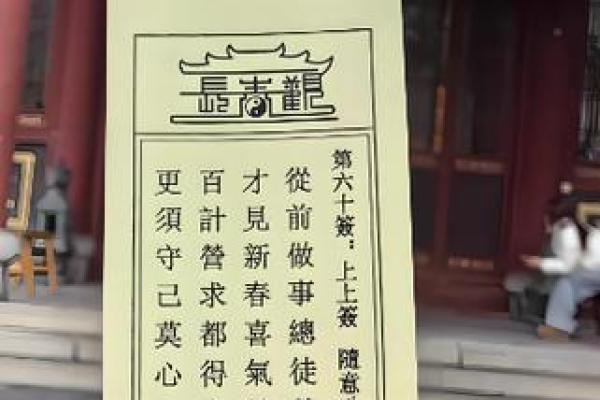 長春觀
第六十簽：上上簽 隨意
從前做事總徒
才見新春喜氣
百計營求都得
更須守己莫心